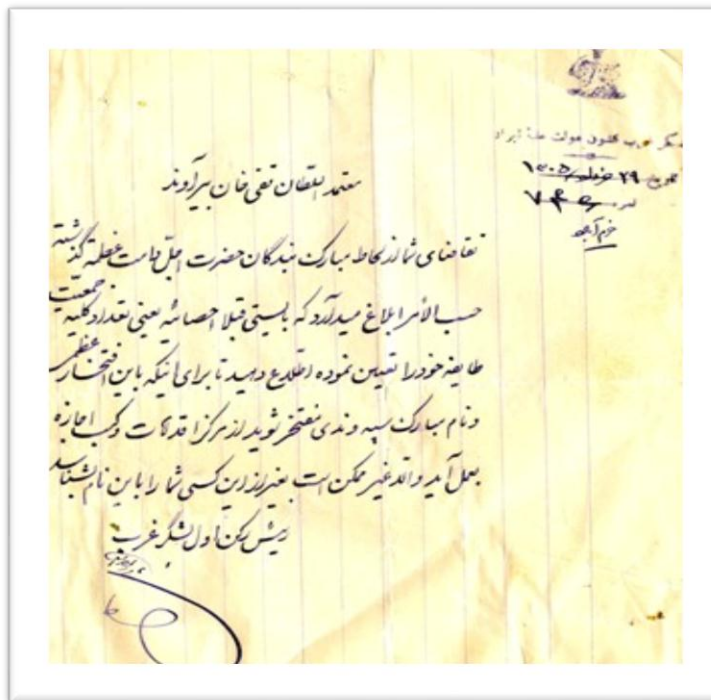 لشکر غرب قشون دولت علیه ایران
مورخه ۲۹ خرداد ۱۳۰۵
نمره ۷۴۵
خرم آباد
معتمد السلطان تقی خان بیرآوند
تقاضای شما از لحاظ مبارک بندگان حضرت اجل دامت عظمته گذشته
حسب الامر ابلاغ میدارد که بایستی قبلا احصائیه یعنی تعداد کلیه جمعیت
طایفه خود را تعیین نموده اطلاع دهید تا برای اینکه باین افتخار عظمی
و نام مبارک سپه وندی مفتخر شوید از مرکز اقدامات و کسب اجازه
بعمل آید والا غیر ممکن است بغیر از این کسی شما را باین نام بشناسد
رئیس رکن اول لشگر غرب